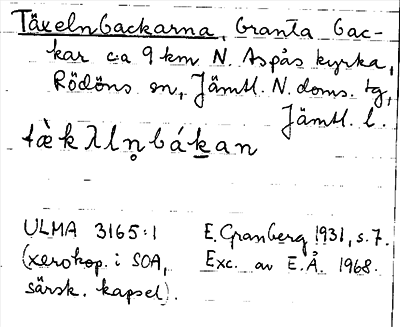 Täxelnbackarna, branta bac-
kar ca 9 km N. Aspås kyrka,
Rödöns sn, Jämtl. N. doms. tg,
Jämtl. l.
tὲkλln̥bákan
ULMA 3165:1
(xerokop. i SOA,
särsk. kapsel).
E. Granberg 1931, s. 7.
Exc. av E.Å. 1968.